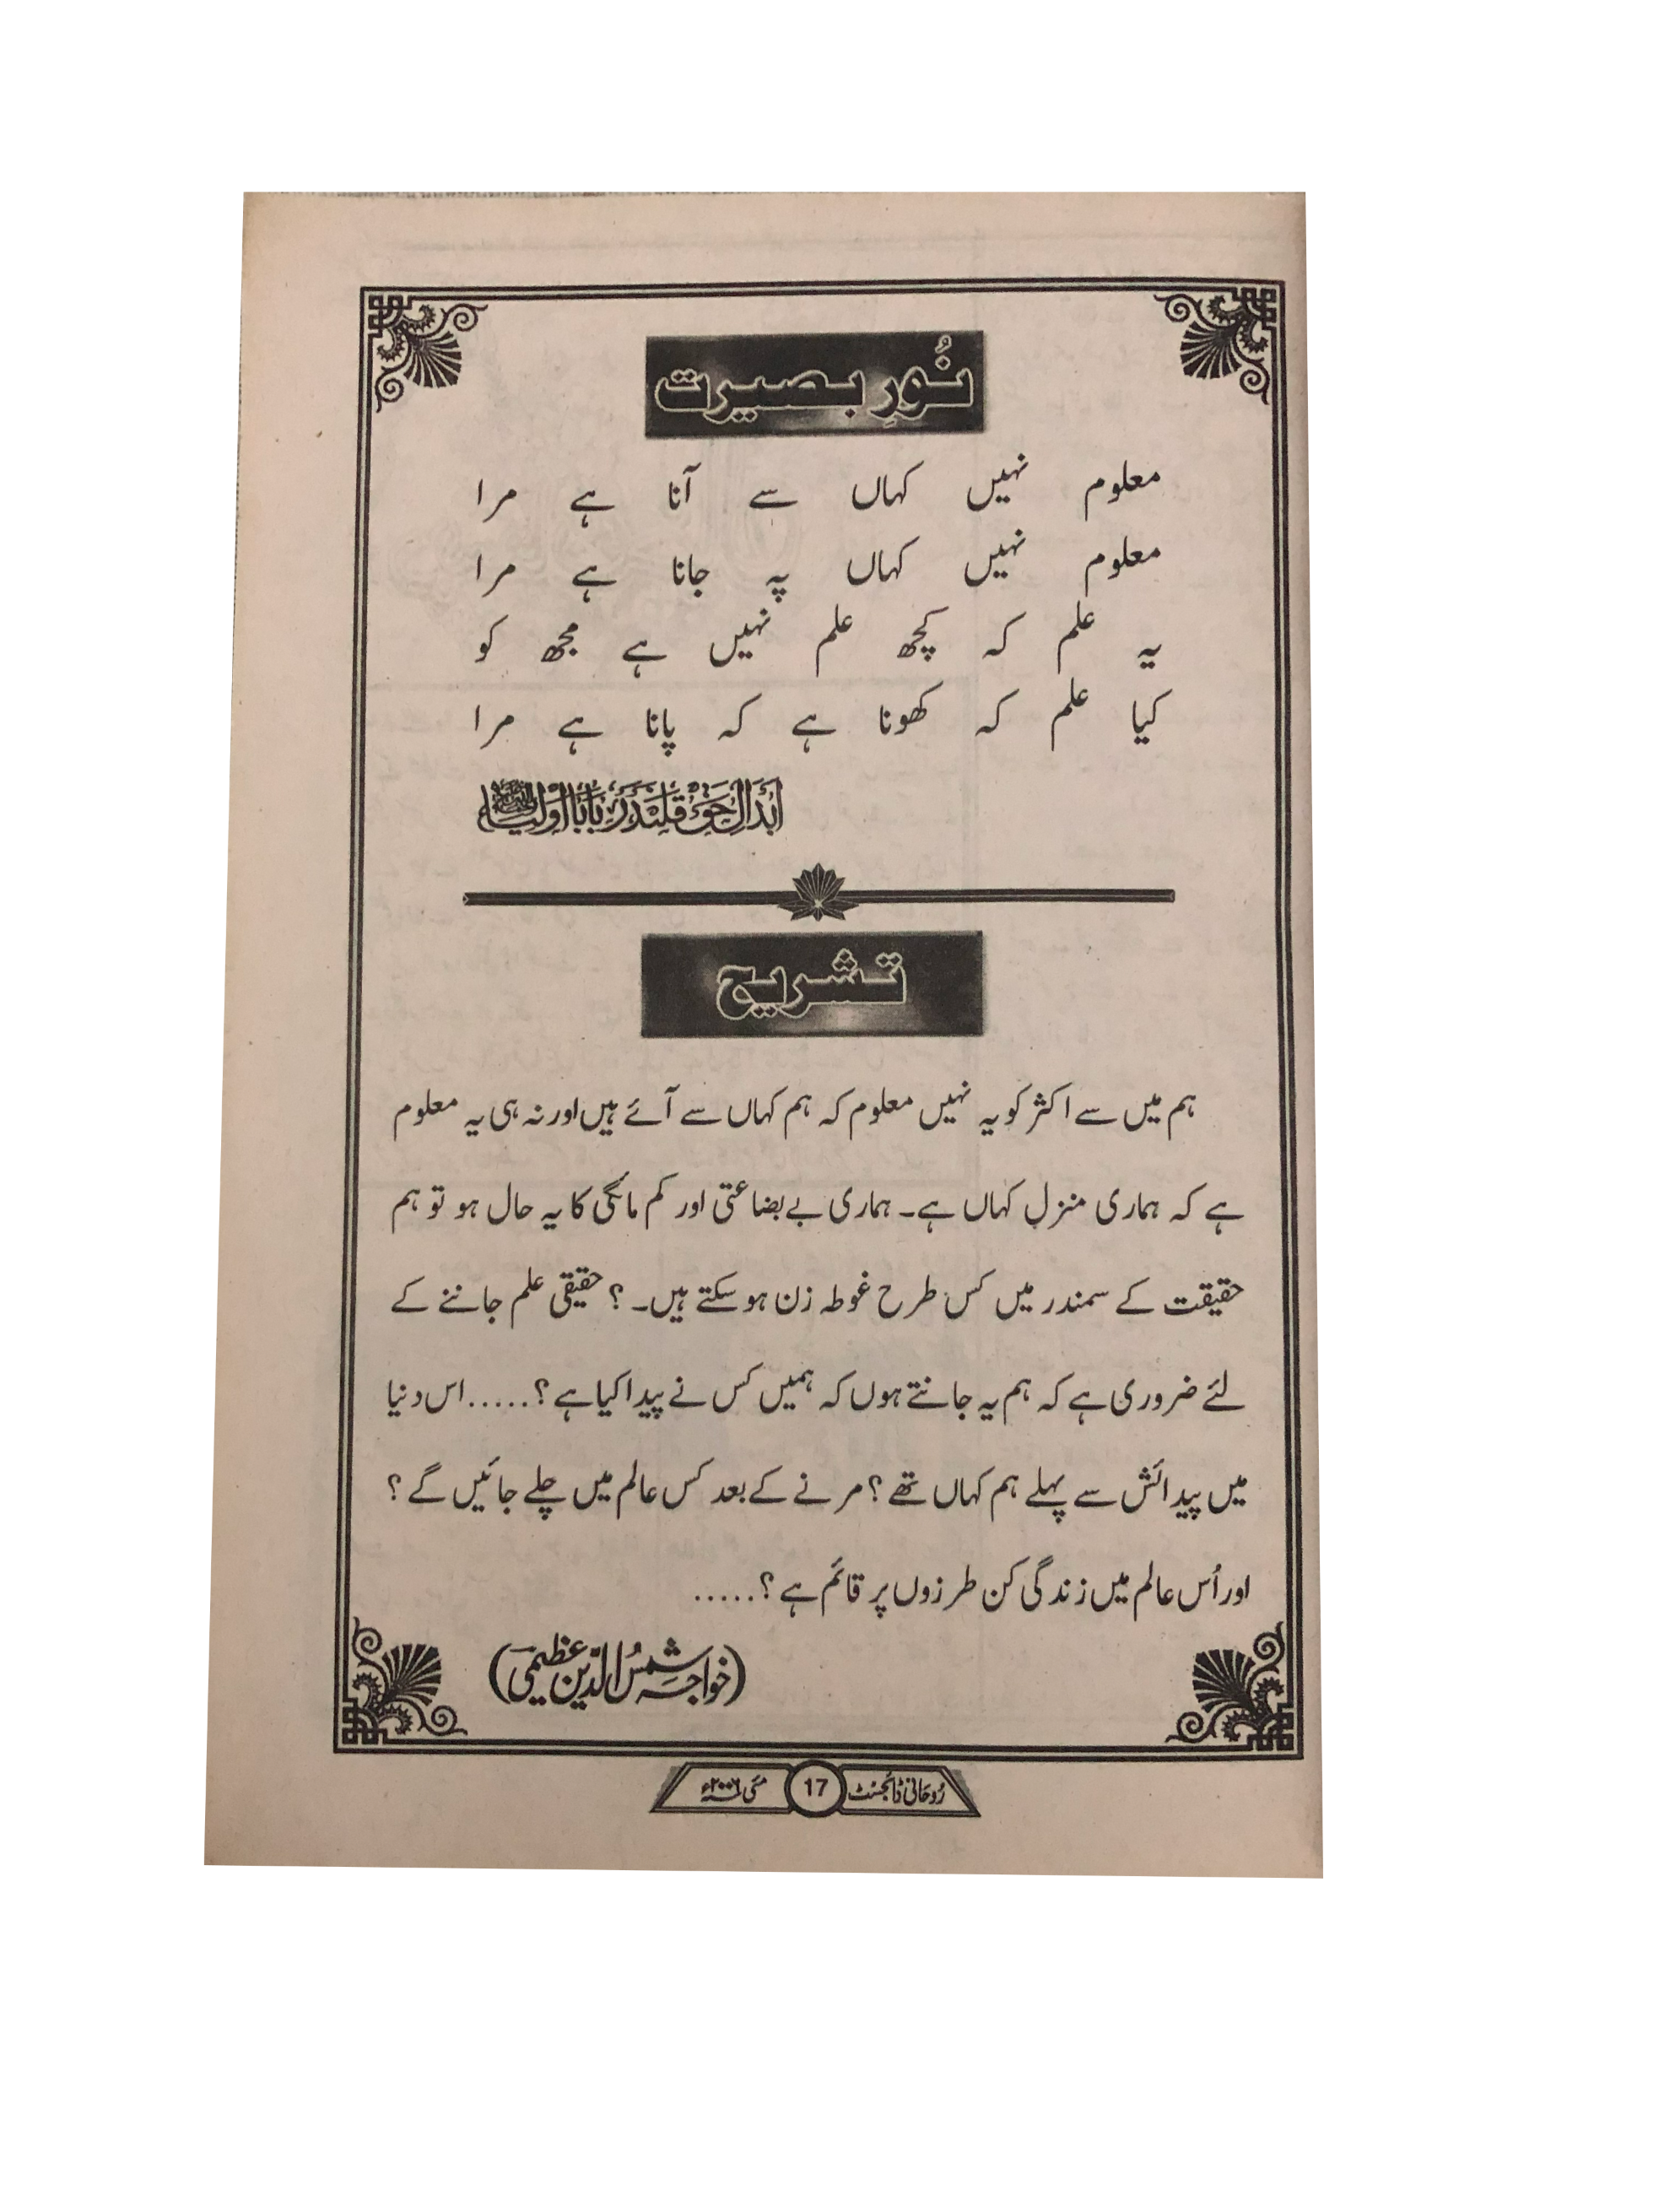 نُورِ بصیرت
معلوم نہیں کہاں سے آنا ہے مرا
معلوم نہیں کہاں پہ جانا ہے مرا
یہ علم کہ کچھ علم نہیں ہے مجھ کو
کیا علم کہ کھونا ہے کہ پانا ہے مرا
ابدالِ حق قلندر بابا اولیاءؒ
تشریح
ہم میں سے اکثر کو یہ نہیں معلوم کہ ہم کہاں سے آئے ہیں اور نہ ہی یہ معلوم
ہے کہ ہماری منزل کہاں ہے۔ ہماری بے بضاعتی اور کم مائگی کا یہ حال ہو تو ہم
حقیقت کے سمندر میں کس طرح غوطہ زن ہوسکتے ہیں۔ ؟ حقیقی علم جاننے کے
لئے ضروری ہے کہ ہم یہ جانتے ہوں کہ ہمیں کس نے پیدا کیا ہے ؟.....اس دنیا
میں پیدائش سے پہلے ہم کہاں تھے ؟ مرنے کے بعد کس عالم میں چلے جائیں گے ؟
اور اُس عالم میں زندگی کن طرزوں پر قائم ہے ؟.....
(خواجہ شمسُ الدّین عظیمی)
رُوحانی ڈائجسٹ 17 مئی ۲۰۰۶ء